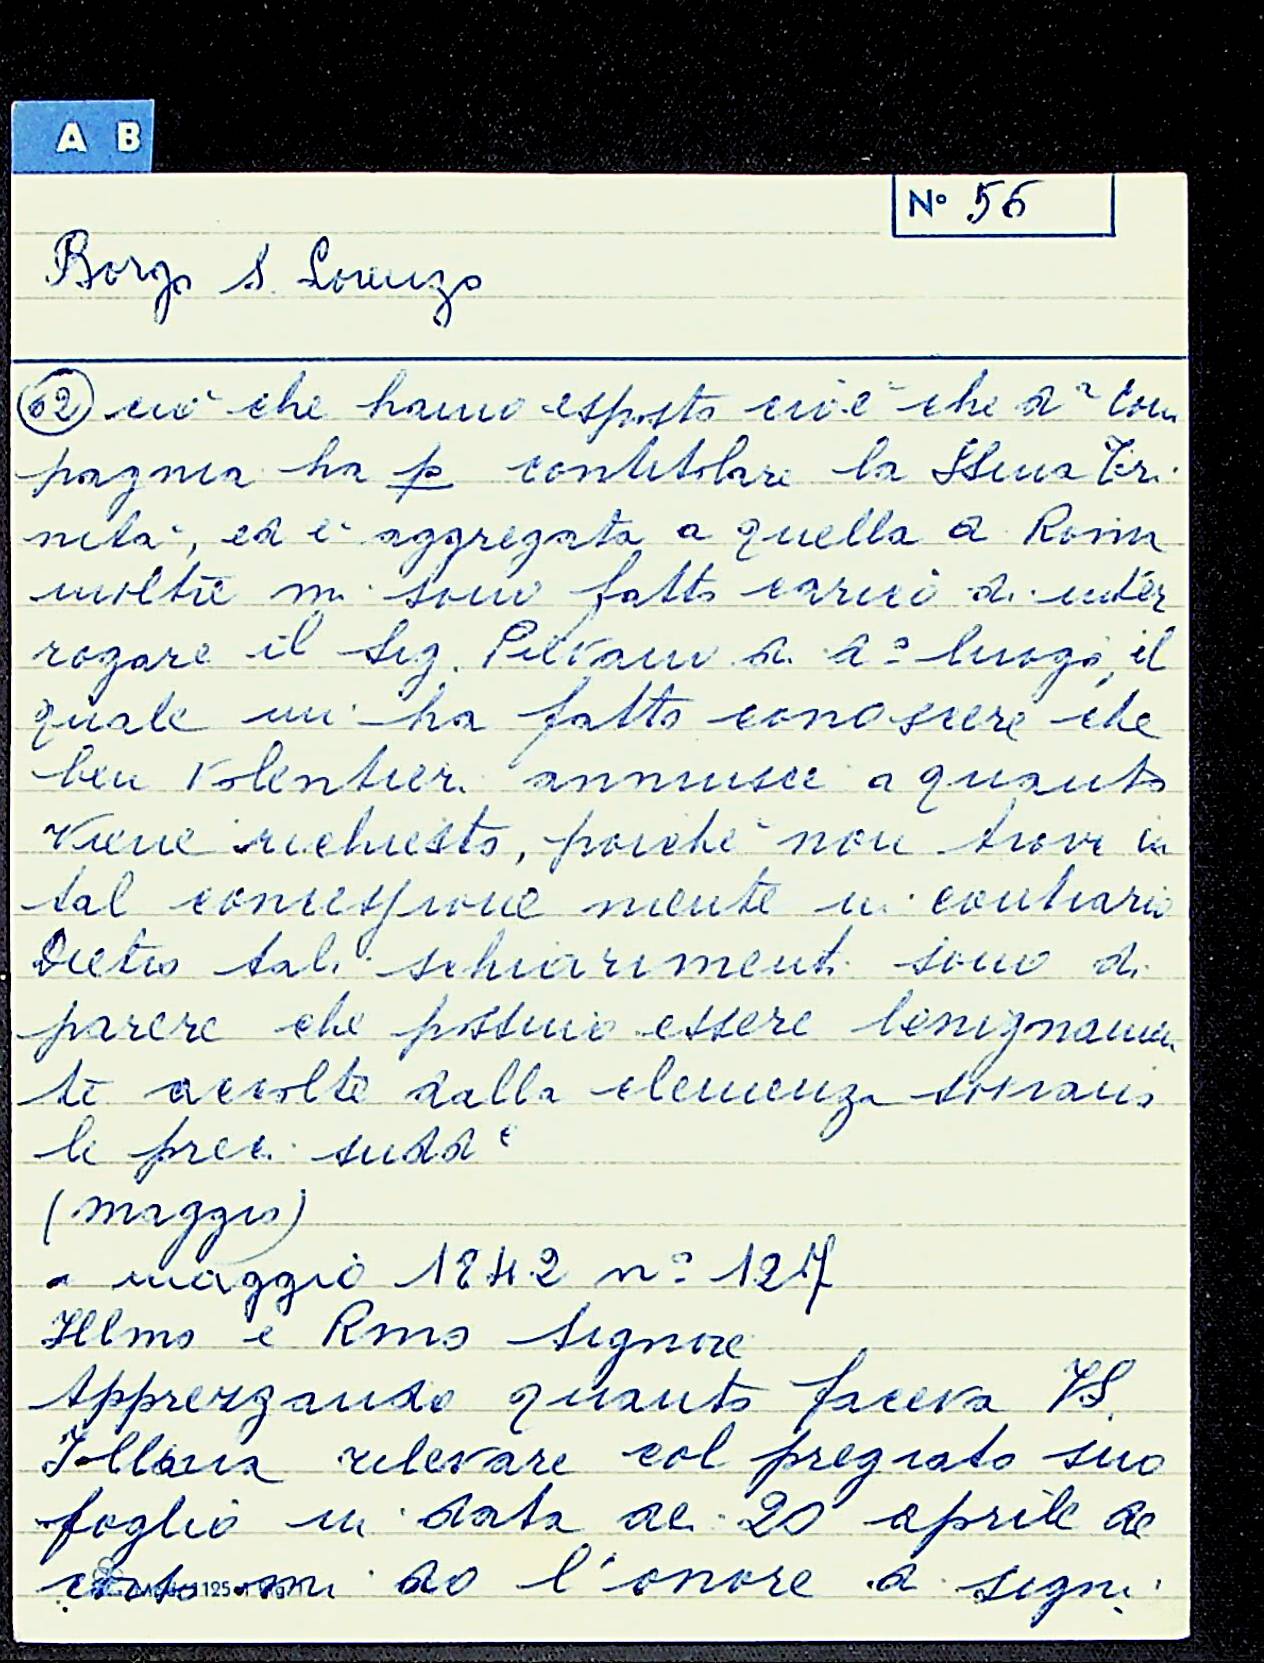 A B
N° 56
Borgo S. Lorenzo
(62) ciò che hanno esposto cioè che da Com
pagnia ha p contitolare la SSma Tri
nità, ed è aggregata a quella di Roma
inoltre mi sono fatto carico di inter
rogare il Sig. Pievano di do luogo, il
quale mi ha fatto conoscere che
ben volentieri annuisce a quanto
viene richiesto, poiché non trova in
tal concessione niente in contrario
Dietro tali schiarimenti sono di
parere che possino essere benignamen
te accolte dalla clemenza sovrana
le preci sudde
(maggio)
a maggio 1842 n° 127
Illmo e Rmo Signore
Apprezzando quanto faceva VS.
Illma rilevare col pregiato suo
foglio in data de 20 aprile de
corso mi do l'onore di signi